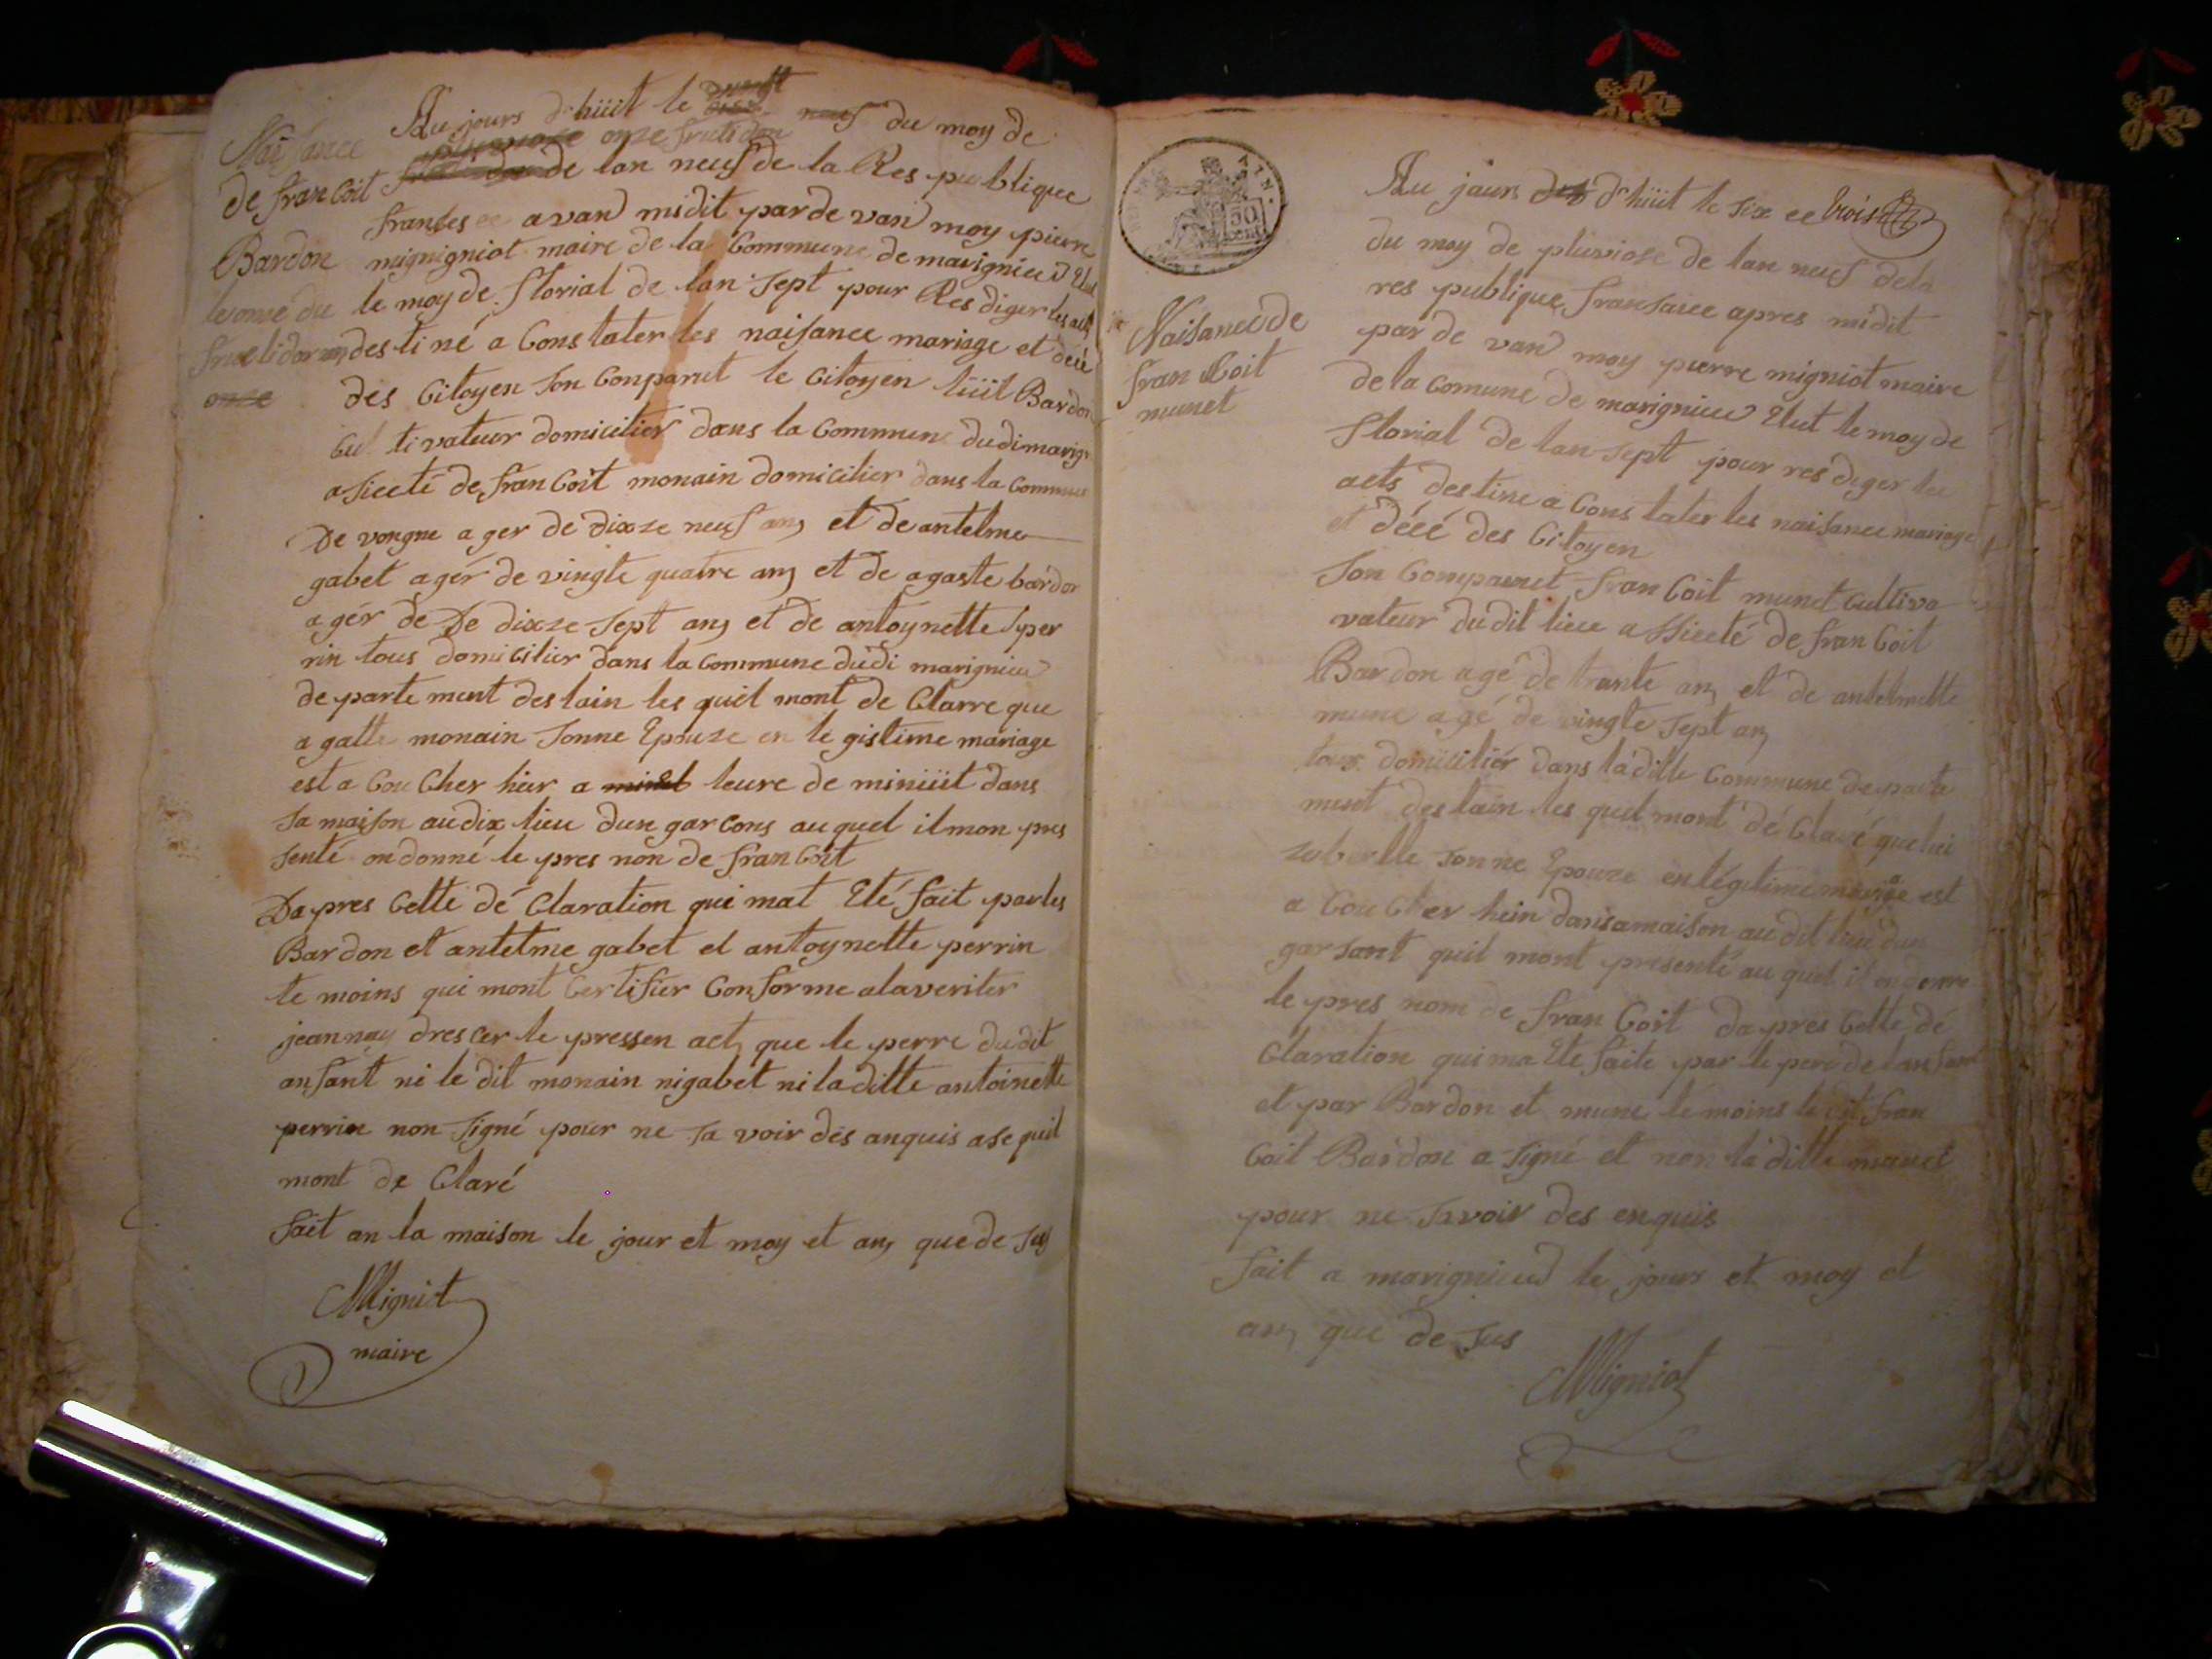 Naisance
de franCoit
Bardon
le onze du
fructidor an
onze
Au jours d'huit le neuf du moy de
pluviose onze fructidor
de lan neuf de la Res publique
franses avand midit par de vand moy pierre
mignigniot maire de la Commune de marignieud Elut
le moy de florial de lan sept pour Res diger les act
destiné a Cons tater les naisance mariage et décé
des Citoyen Son Conparut le Citoyen Bardon
Cul tivateur domicilier dans la Commune dudi marign
a sicté de franCoit monain domicilier dans la Commune
De vongne a ger de dixze neuf an et de antelme
gabet agér de vingte quatre an et de agaste bardon
a gér de De dixze sept an et de antoynette Sper
rin tous domicilier dans la Commune dudi marignieud
de parte ment des lain les quel mont de Clarre que
a gatte monain Sonne Epouze en le gistime mariage
est a Cou Cher hier a leure de miniüit dans
Sa maison audix lieu dun garCons au quel il mon pres
Senté on donné le pres non de franCoit
Da pres Cette dé Claration qui mat Eté fait par les
Bardon et antelme gabet et antoynette perrin
te moins qui mont Certifier Conforme a la veriter
jean nay dresCer le pressen act que le perre du dit
anfant ni le dit monain ni gabet ni la ditte antoinette
perrin non Signé pour ne Sa voir des anquis a se quil
mont de Claré
fait an la maison le jour et moy et an que de Sus
Migniot
maire
50
Naisance de
fran Coit
munet
Au jours d'huit le six ee trois
du moy de pluviose de lan neuf de la
res publique fransaice apres midit
par de vand moy pierre migniot maire
de la Comune de marignieud Elut le moy de
florial de lan sept pour res diger les
acts destine a Cons tater les naisance mariage
et décé des Citoyen
Son Comparuet fran Coit munet Cultiva
vateur dudit lieu a Sicté de fran Coit
Bardon agé de trante an et de antelmette
mune agé de vingte sept an
tous domicilier dans la ditte Commune de parte
ment des lain les quel mont dé Claré que
Sonne Epouze en légitime mariage est
a Cou Cher hein dans a maison au dit lieu dun
garsant quil mont presenté au quel il on donné
le pres nom de fran Coit da pres Cette dé
Claration qui ma Eté faite par le pere de lanfant
et par Bardon et mune te moins le dit fran
Coit Bardon a Signé et non la ditte munet
pour ne Savoir des enquis
fait a marignieud le jour et moy et
an que de Sus
Migniot